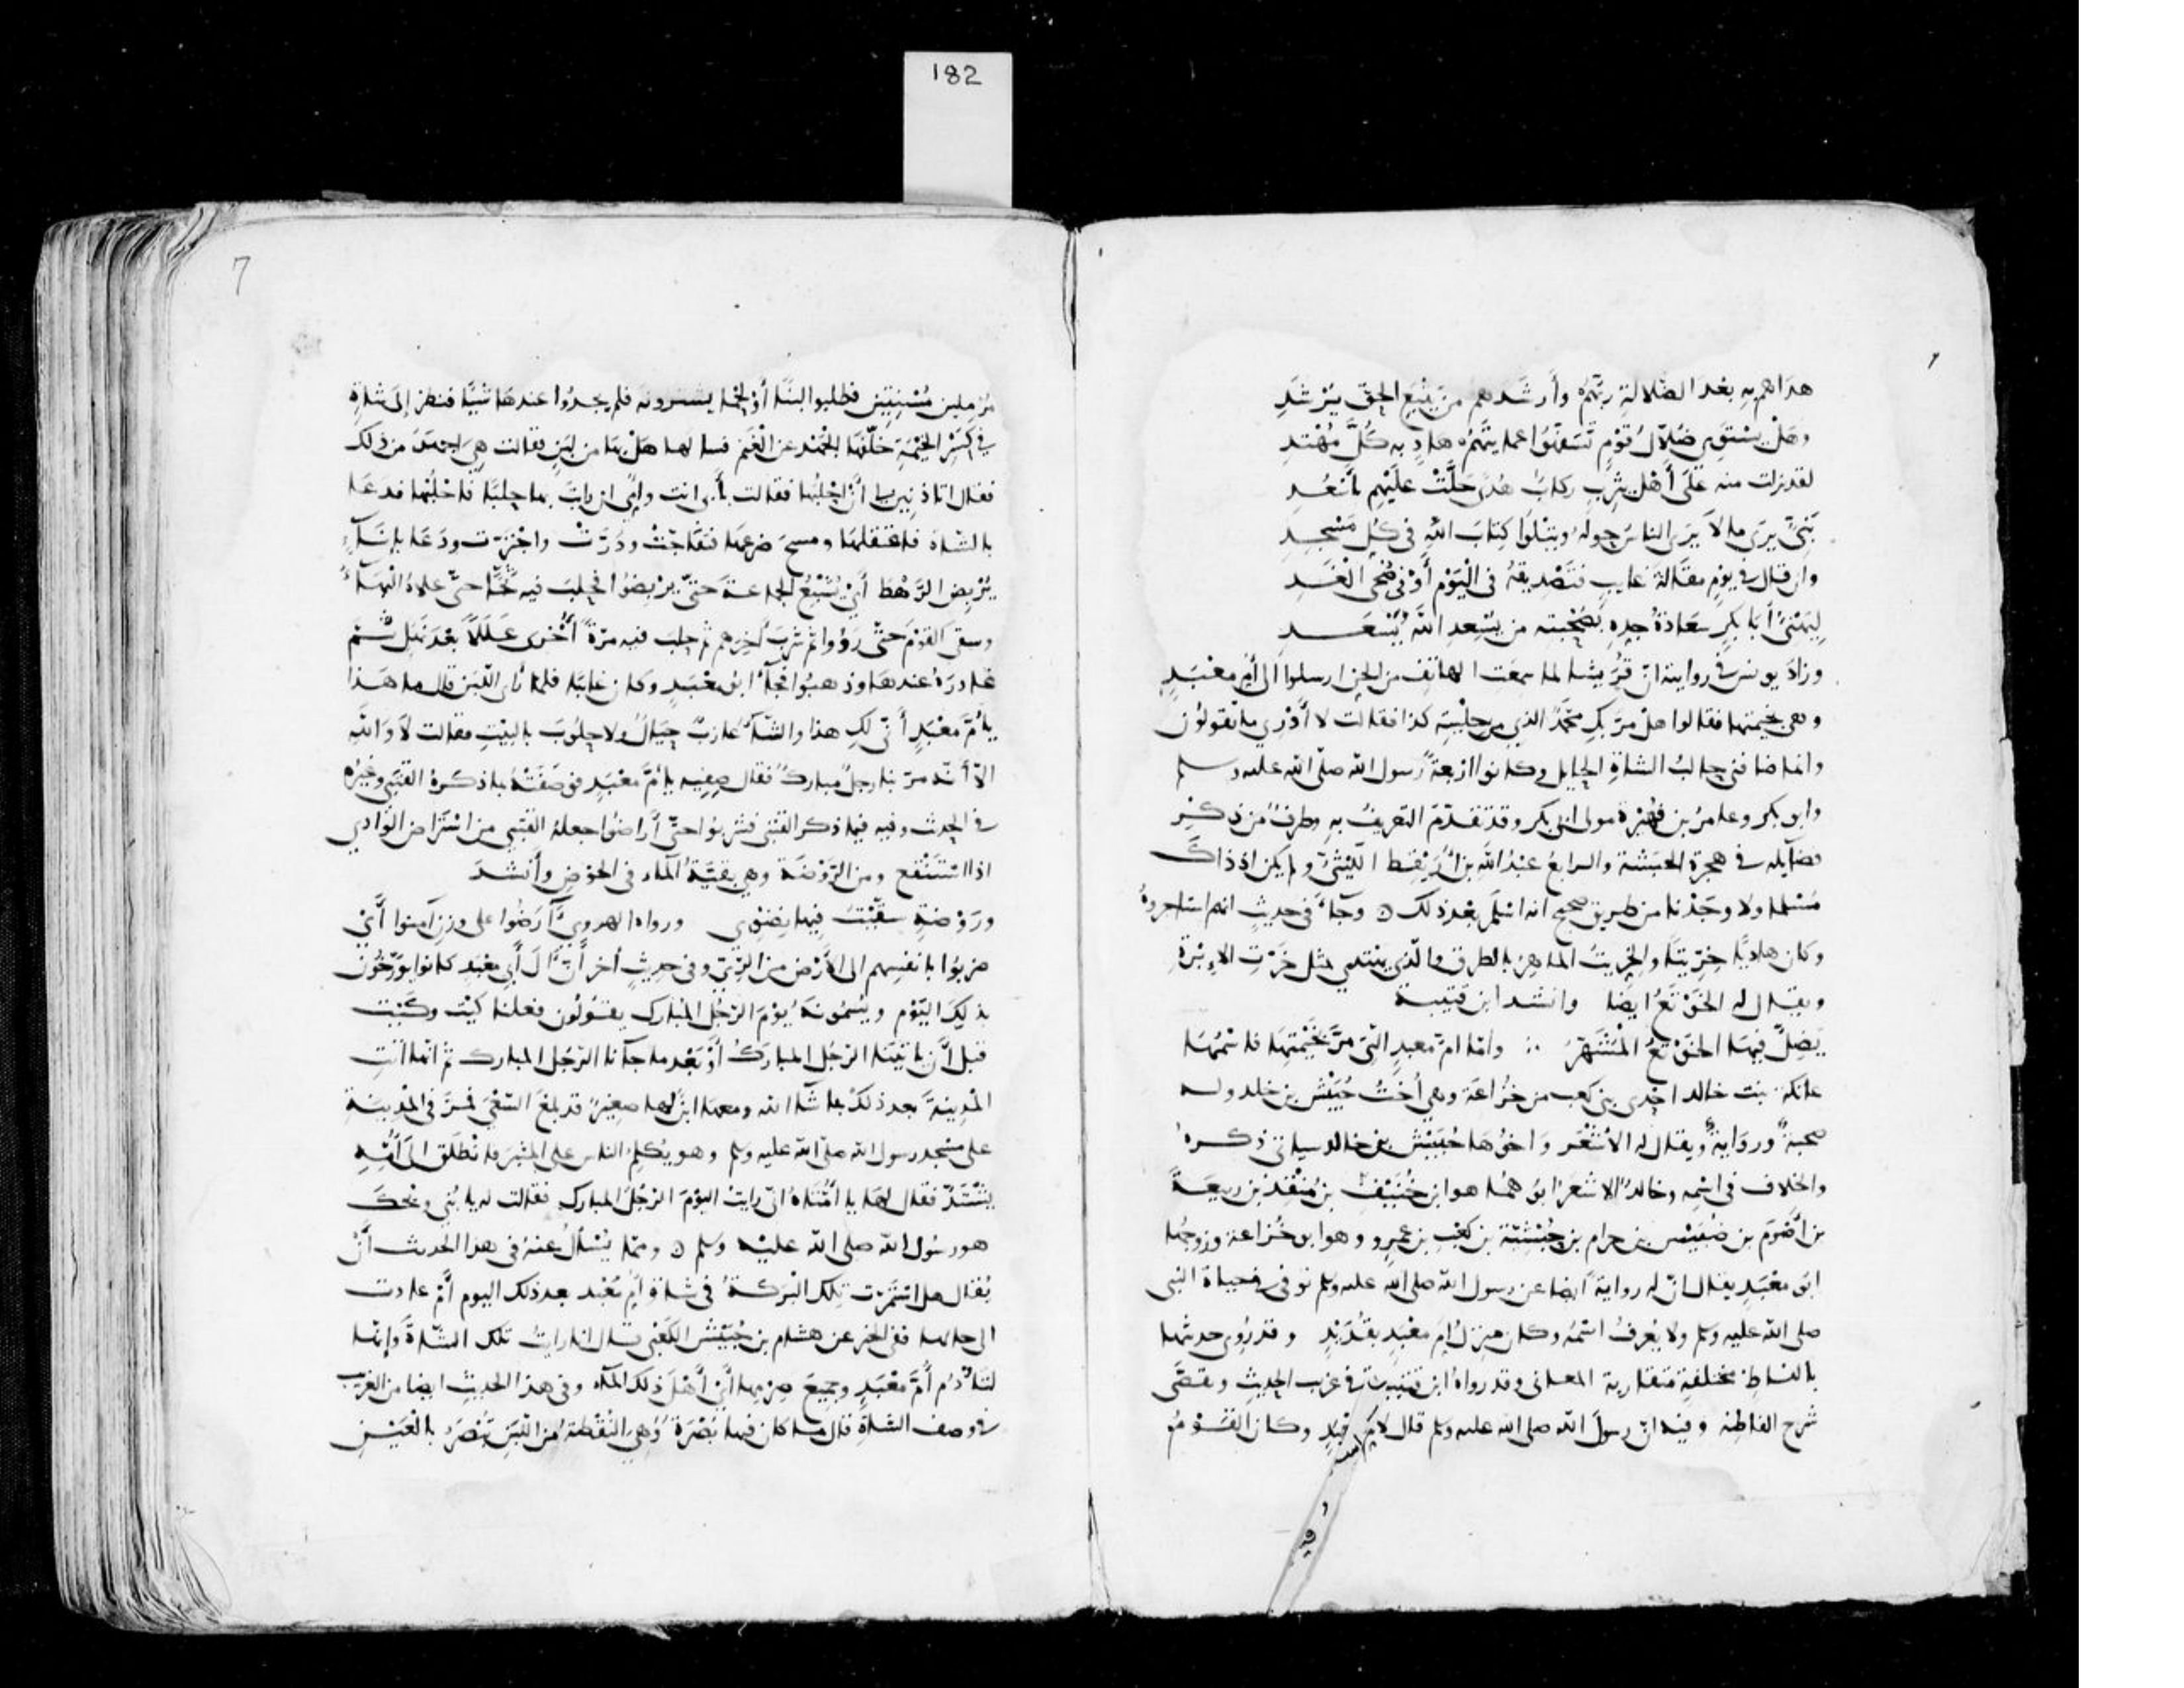 182
هداهم به بعد الضلالة ربهم وأرشدهم من يتبع الحق يرشد
وهل يستوي ضلال قوم تسفهوا عمايتهم هاد به كل مهتد
لقد نزلت منه على أهل يثرب ركاب هدى حلت عليهم بأسعد
نبي يرى ما لا يرى الناس حوله ويتلوا كتاب الله في كل مسجد
وان قال في يوم مقالة غايب فتصديقه في اليوم أو في ضحى الغد
ليهنئ أبا بكر سعادة جده بصحبته من يسعد الله يسعد
وزاد يونس في روايته ان قريشا لما سمعت الهاتف من الجن ارسلوا الى أم معبد
وهي بخيمتها فقالوا هل مر بك محمد الذي من حليته كذا فقالت لا أدري ما تقولون
وانما ضافني حالب الشاة الحايل وكانوا اربعة رسول الله صلى الله عليه وسلم
وابو بكر وعامر بن فهيرة مولى ابي بكر وقد تقدم التعريف به وطرف من ذكر
فضايله في هجرة الحبشة والرابع عبد الله بن أريقط الليثي ولم يكن اذ ذاك
مسلما ولا وجدنا من طريق صحيح انه اسلم بعد ذلك وجاء في حديث انهم استاجروه
وكان هاديا خريتا والخريت الماهر بالطرق الذي يهتدي لمثل خرت الابرة
ويقال له الخوتع ايضا وانشد ابن قتيبة
يضل فيها الخوتع المشهر واما ام معبد التي مر بخيمتها فاسمها
عاتكة بنت خالد احدى بني كعب من خزاعة وهي أخت حبيش بن خلد وله
صحبة ورواية ويقال له الاشعر واخوها حبيش بن خالد سياتي ذكره
والخلاف في اسمه وخالد الاشعر ابوهما هو ابن خنيف بن منقذ بن ربيعة
بن أصرم بن ضبيس بن حرام بن حبشية بن كعب بن عمرو وهو ابو خزاعة وزوجها
ابو معبد يقال ان له رواية أيضا عن رسول الله صلى الله عليه وسلم توفي في حياة النبي
صلى الله عليه وسلم ولا يعرف اسمه وكان منزل ام معبد بقديد وقد روي حديثها
بالفاظ مختلفة متقاربة المعاني وقد رواه ابن قتيبة في غريب الحديث وتقصى
شرح الفاظه وفيه ان رسول الله صلى الله عليه وسلم قال لام معبد وكان القوم
7
مرملين مسنتين فطلبوا لبنا أو لحما يشترونه فلم يجدوا عندها شيا فنظر إلى شاة
في كسر الخيمة خلفها الجهد عن الغنم فسالها هل بها من لبن فقالت هي اجهد من ذلك
فقال اتاذنين لي أن احلبها فقالت بأبي انت وامي ان رايت بها حلبا فاحلبها فدعا
بالشاة فاعتقلها ومسح ضرعها فتفاجت ودرت واجترت ودعا بإناء
يربض الرهط أي يشبع الجماعة حتى يربضوا فحلب فيه ثجا حتى علاه البهاء
وسقى القوم حتى رووا ثم شرب آخرهم ثم حلب فيه مرة أخرى عللا بعد نهل ثم
غادره عندها وذهبوا فجاء ابو معبد وكان غايبا فلما رأى اللبن قال ما هذا
يا أم معبد أنى لك هذا والشاء عازب حيال ولا حلوب بالبيت فقالت لا والله
الا أنه مر بنا رجل مبارك فقال صفيه يا أم معبد فوصفته بما ذكره القتبي وغيره
في الحديث وفيه فيما ذكر القتبي فشربوا حتى أراضوا جعله القتبي من استراض الوادي
اذا استنقع ومن الروضة وهي بقية الماء في الحوض وأنشد
وروضة سقيت فيها نضوي ورواه الهروي آرضوا على وزن آمنوا أي
ضربوا بانفسهم الى الأرض من الري وفي حديث اخر أن آل أبي معبد كانوا يورخون
بذلك اليوم ويسمونه يوم الرجل المبارك يقولون فعلنا كيت وكيت
قبل أن ياتينا الرجل المبارك أو بعد ما جاءنا الرجل المبارك ثم انها أتت
المدينة بعد ذلك بما شاء الله ومعها ابن لها صغير قد بلغ السعي فمر في المدينة
على مسجد رسول الله صلى الله عليه وسلم وهو يكلم الناس على المنبر فانطلق الى أمه
يشتد فقال لها يا امتاه اني رايت اليوم الرجل المبارك فقالت له يا بني ويحك
هو رسول الله صلى الله عليه وسلم ومما يسأل عنه في هذا الحديث أن
يقال هل استمرت تلك البركة في شاة أم معبد بعد ذلك اليوم أم عادت
الى حالها ففي الخبر عن هشام بن حبيش الكعبي قال انا رايت تلك الشاة وإنها
لتادم أم معبد وجميع صرمها أي أهل ذلك الماء وفي هذا الحديث ايضا من الغريب
في وصف الشاة قال ما كان فيها بصرة وهي النقطة من اللبن تبصر بالعين